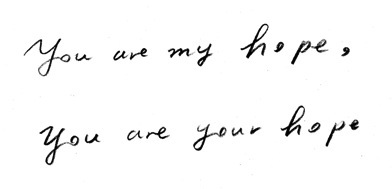 You are my hope,
You are your hope